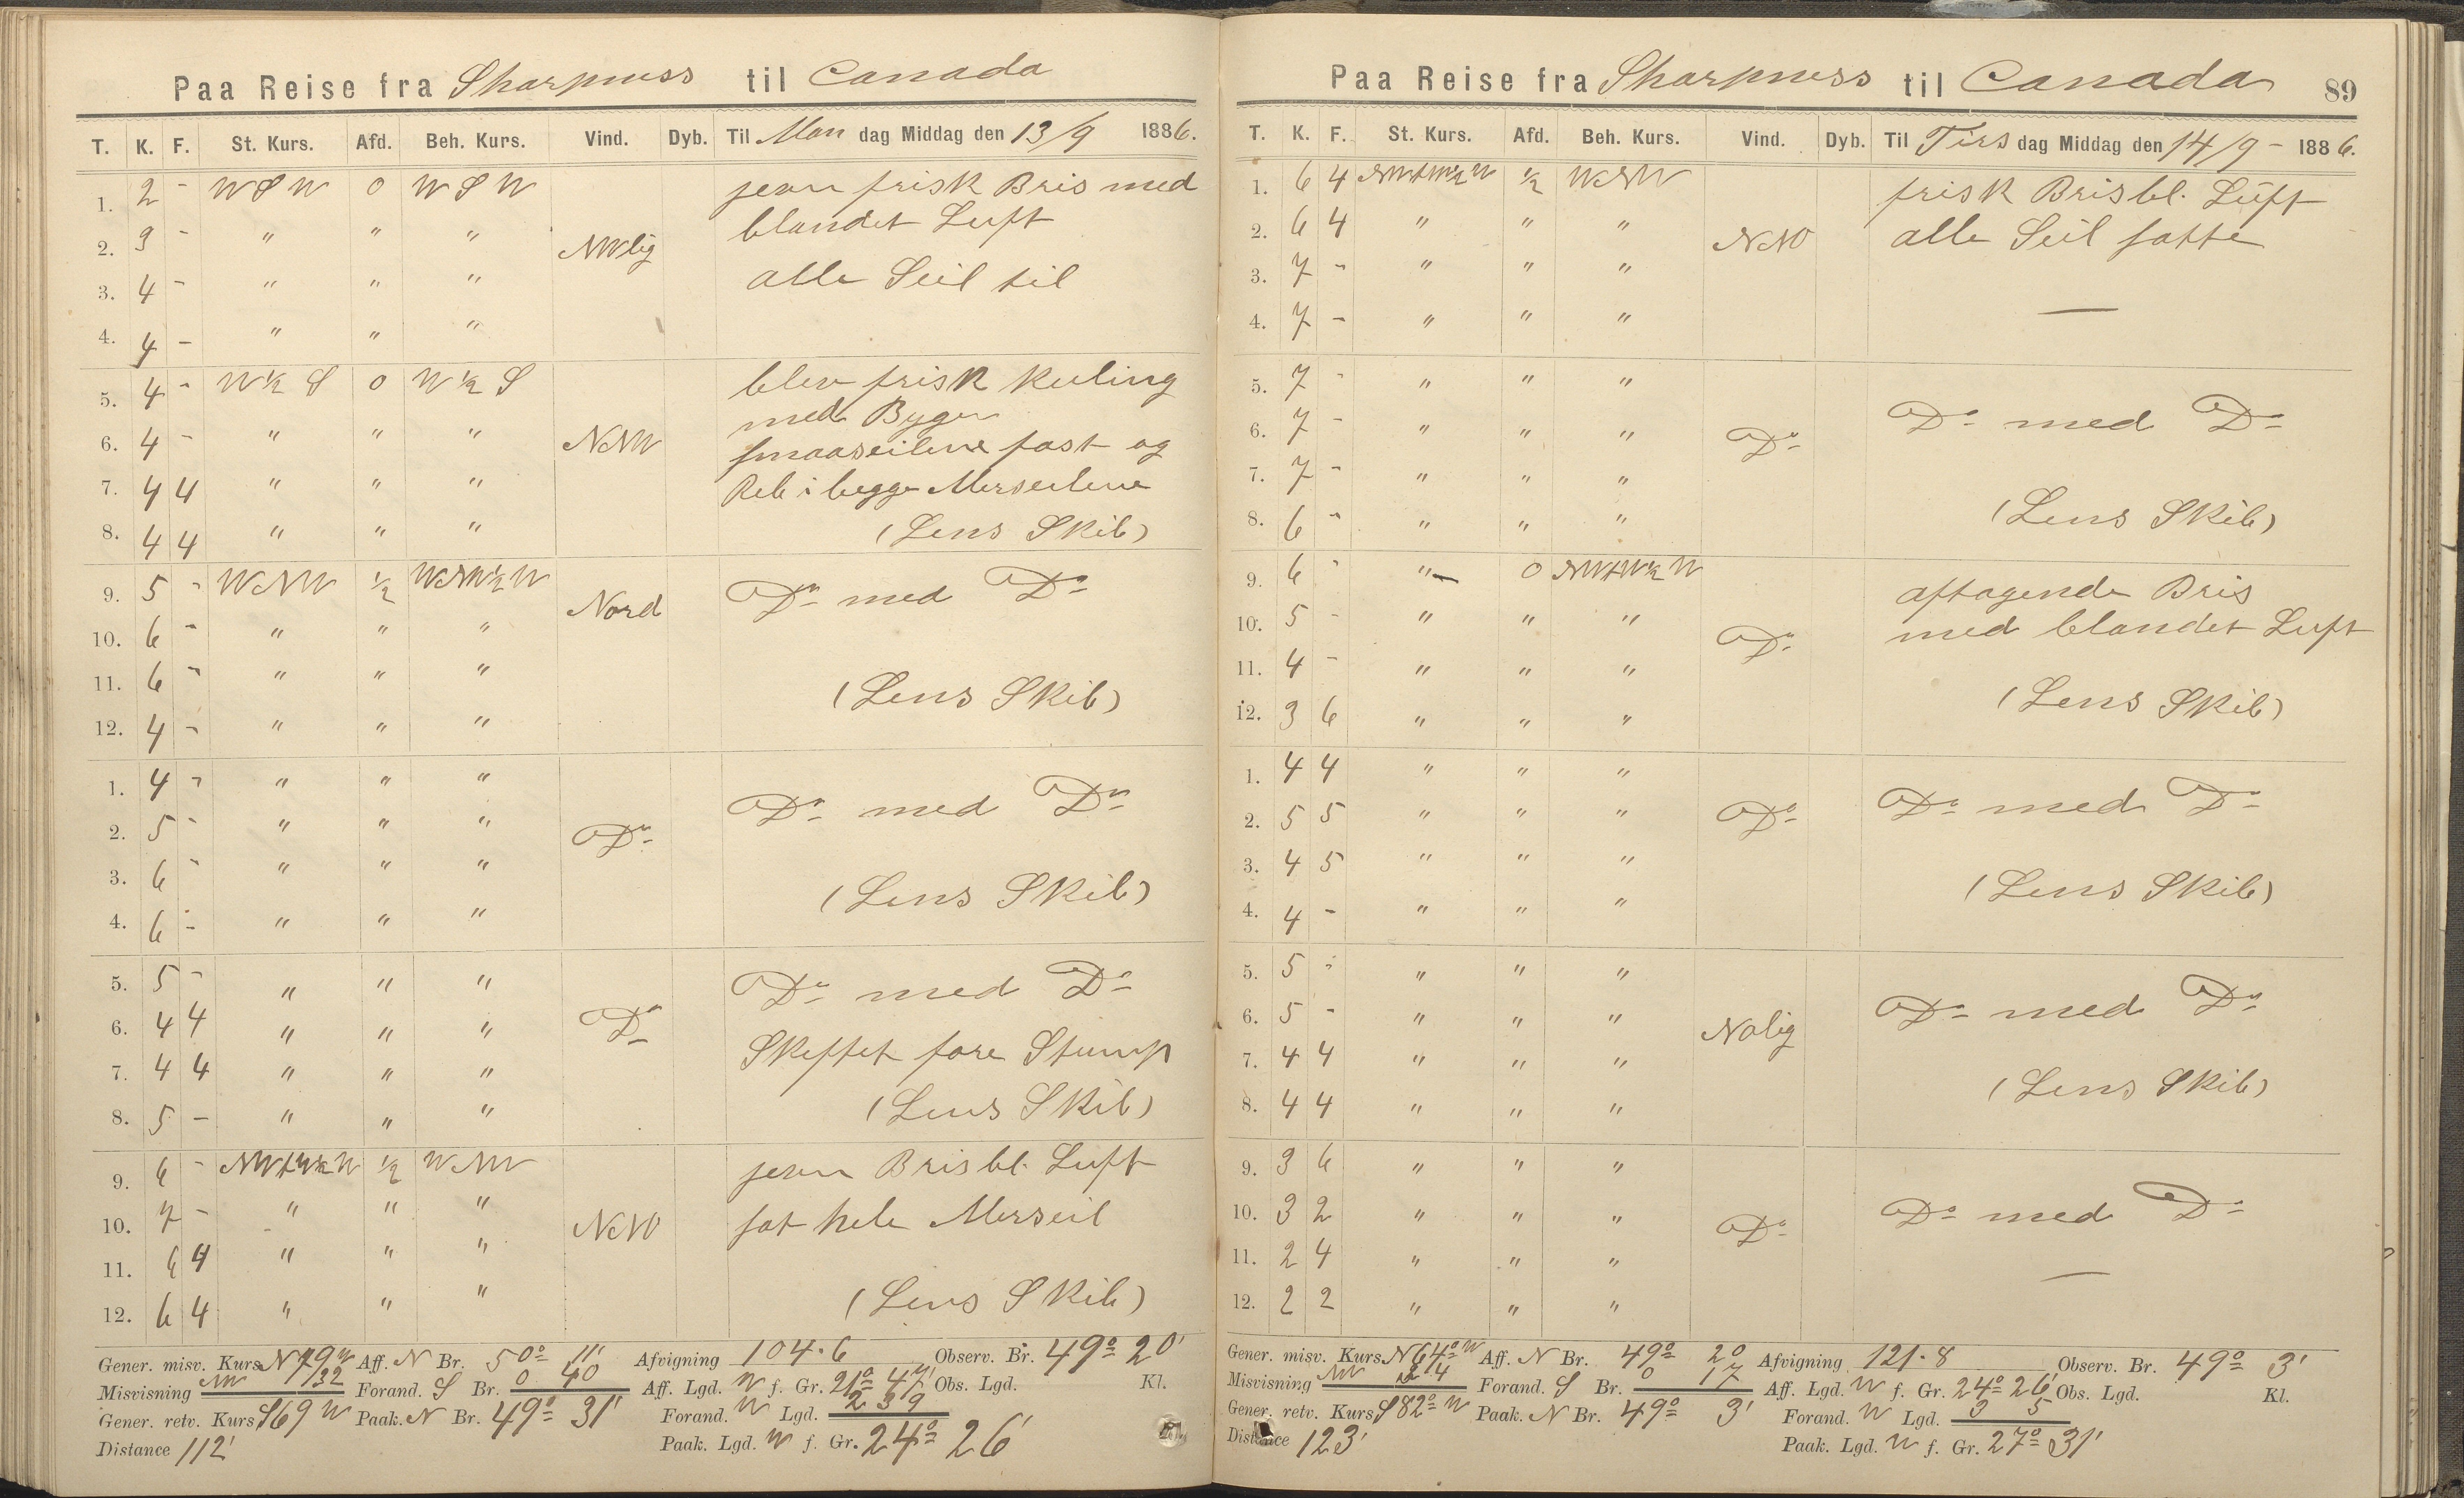 Paa Reise fra Sharpness til Canada
T. K. F. St. Kurs. Afd. Beh. Kurs. Vind. Dyb. Til Man dag Middag den 13/9 1886.
1. 2 - W S W 0 W S W jevn frisk Bris med
2. 3 - " " " NWlig blandet Luft
3. 4 - " " " alle Seil til
4. 4 - " " "
5. 4 - W ½ S 0 W ½ S blev frisk Kuling
med Byger
6. 4 - " " " NNW smaaseilene fast og
7. 4 4 " " " Reb i begge Merseilene
8. 4 4 " " " (Lens Skib)
9. 5 - WNW ½ WNW½W Nord Do med Do
10. 6 - " " "
11. 6 - " " " (Lens Skib)
12. 4 - " " "
1. 4 - " " " Do med Do
2. 5 - " " " Do
3. 6 - " " " (Lens Skib)
4. 6 - " " "
5. 5 - " " " Do med Do
6. 4 4 " " " Do
7. 4 4 " " " Skeftet fore Stump
8. 5 - " " " (Lens Skib)
9. 6 - NWtW½W ½ WNW jevn Bris bl. Luft
10. 7 - " " " NNO sat hele Merseil
11. 6 4 " " "
12. 6 4 " " " (Lens Skib)
Gener. misv. Kurs N 79 W Aff. N Br. 50° 11' Afvigning 104.6 Observ. Br. 49° 20'
Misvisning NW 32 Forand. S Br. 0 40 Aff. Lgd. W f. Gr. 21° 47' Obs. Lgd. Kl.
Gener. retv. Kurs S69 W Paak. N Br. 49° 31' Forand. W Lgd. 2 39
Distance 112' Paak. Lgd. W f. Gr. 24° 26'
Paa Reise fra Sharpness til Canada 89
T. K. F. St. Kurs. Afd. Beh. Kurs. Vind. Dyb. Til Tirs dag Middag den 14/9 - 1886.
1. 6 4 NWtW½W ½ WNW frisk Bris bl. Luft
2. 6 4 " " " NNO alle Seil satte
3. 7 - " " "
4. 7 - " " " —
5. 7 - " " "
6. 7 - " " " Do Do med Do
7. 7 - " " "
8. 6 - " " " (Lens Skib)
9. 6 - " 0 NWtW½W aftagende Bris
10. 5 - " " " Do med blandet Luft
11. 4 - " " "
12. 3 6 " " " (Lens Skib)
1. 4 4 " " "
2. 5 5 " " " Do Do med Do
3. 4 5 " " "
4. 4 - " " " (Lens Skib)
5. 5 - " " "
6. 5 - " " " Nolig Do med Do
7. 4 4 " " "
8. 4 4 " " " (Lens Skib)
9. 3 6 " " "
10. 3 2 " " " Do Do med Do
11. 2 4 " " "
12. 2 2 " " " —
Gener. misv. Kurs N64° W Aff. N Br. 49° 20 Afvigning 121.8 Observ. Br. 49° 3'
Misvisning NW 34 Forand. S Br. 0 17 Aff. Lgd. W f. Gr. 24° 26' Obs. Lgd. Kl.
Gener. retv. Kurs S82° W Paak. N Br. 49° 3' Forand. W Lgd. 3 5
Distance 123' Paak. Lgd. W f. Gr. 27° 31'